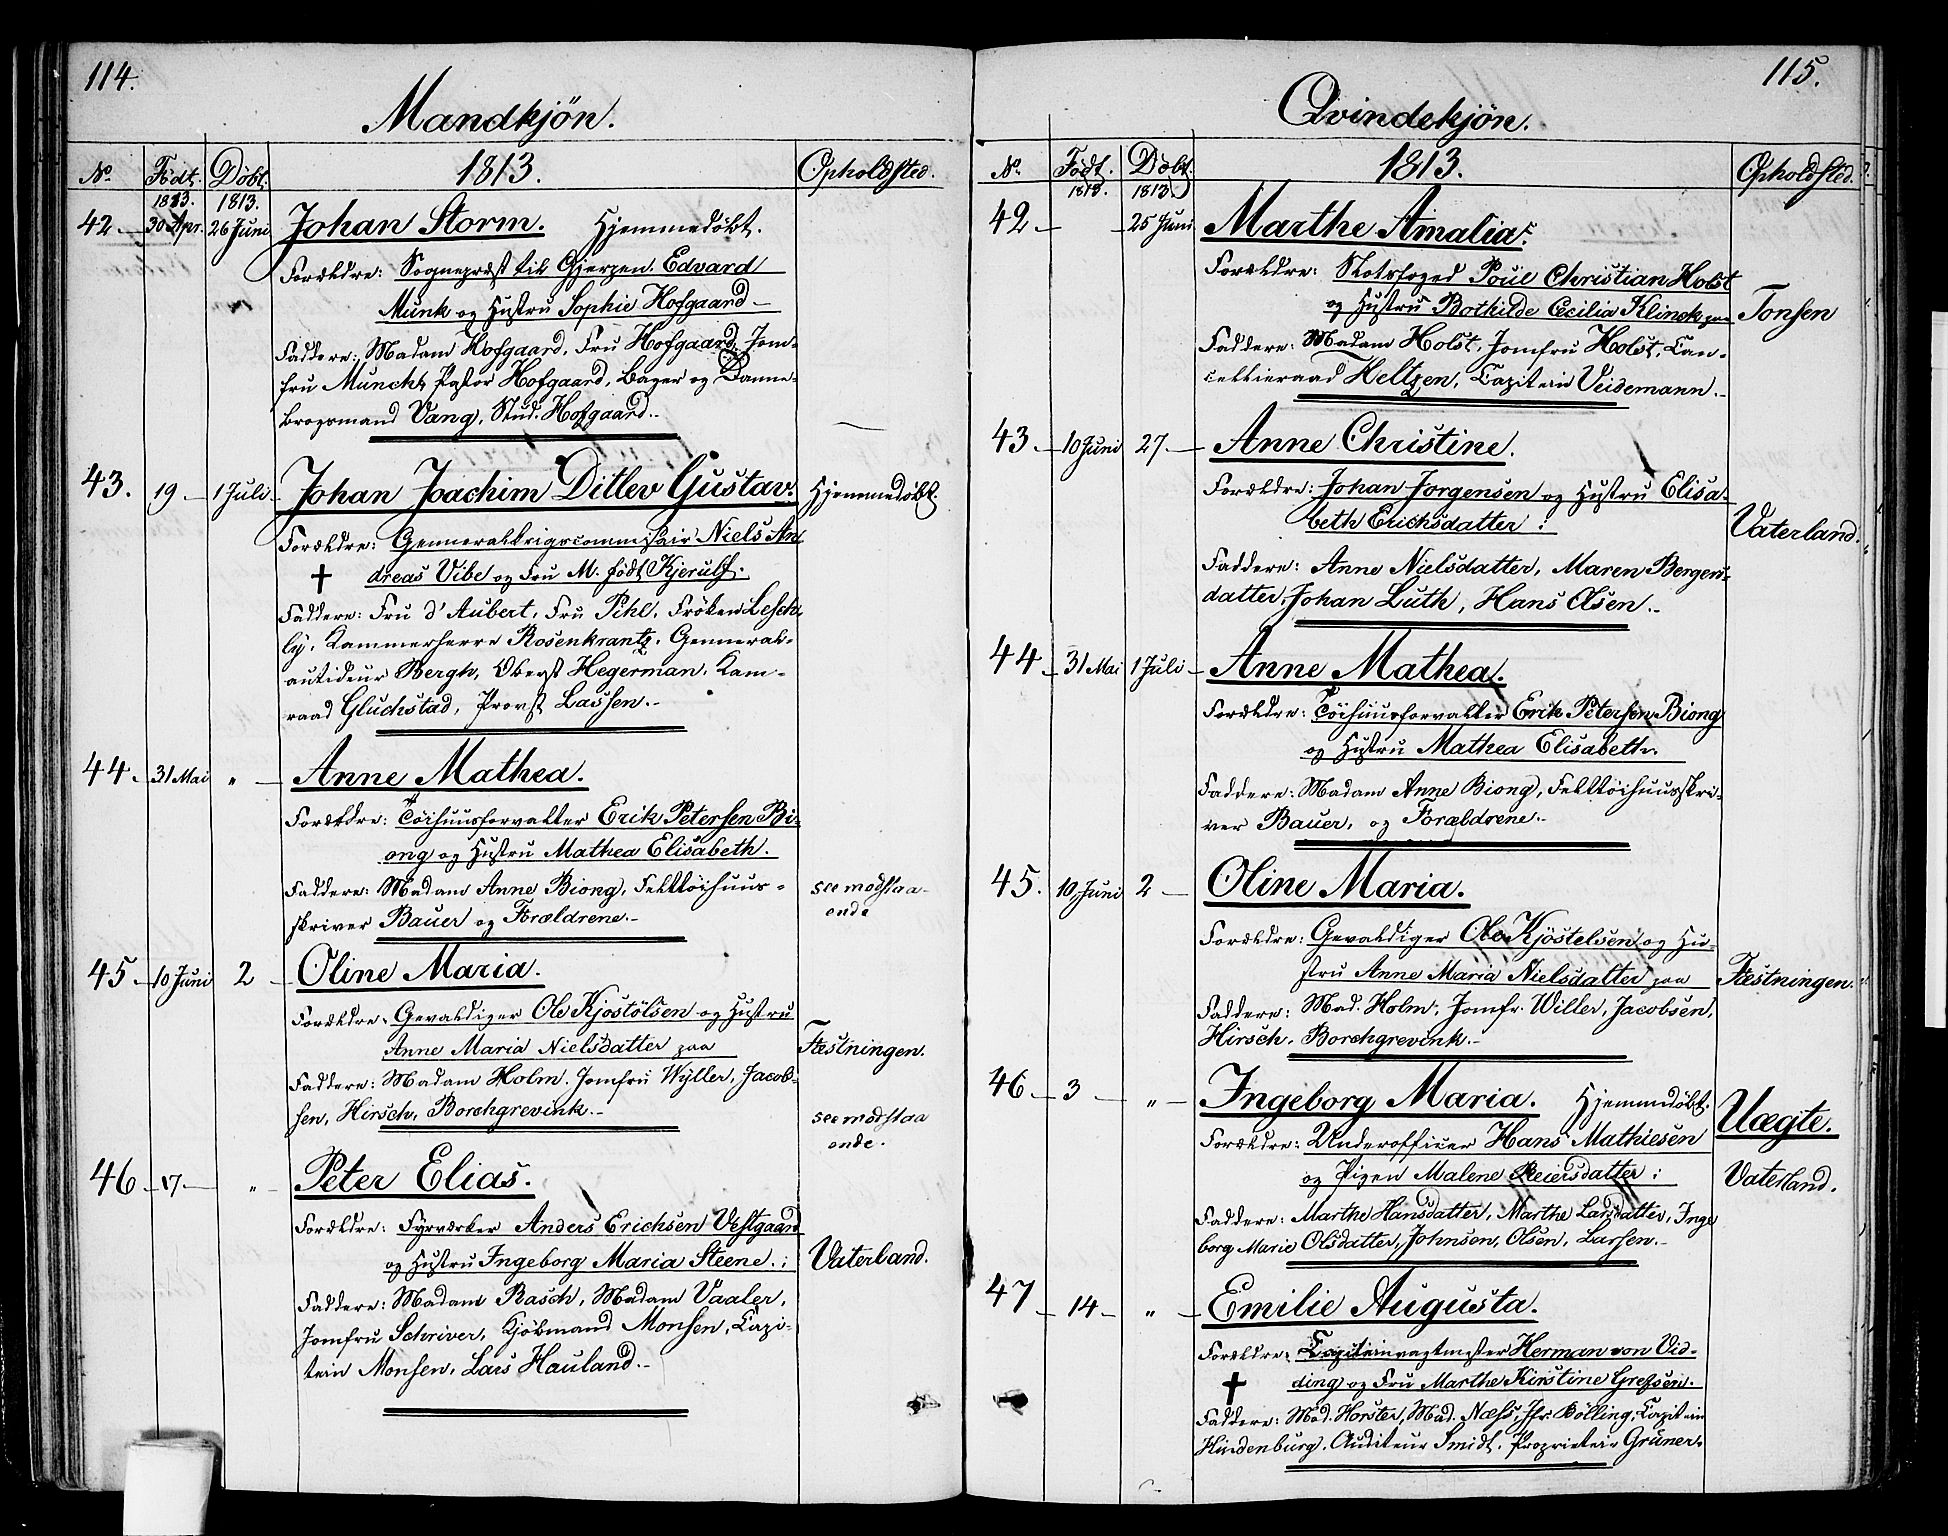 114.
Mandkjön.
No. Födt. Döbt. 1813. Opholdsted.
1813. 1813.
42 30 Apr. 26 Juni Johan Storm. Hjemmedøbt.
Forældre: Sognepræst til Gjerpen. Edvard
Munk og Hustru Sophie Hofgaard
Faddere: Madam Hofgaard, Fru Hofgaard, Jom-
fru Munch, Pastor Hofgaard, Bager og Danne-
brogsmand Vang, Stud. Hofgaard.
43. 19 1 Juli Johan Joachim Ditlev Gustav. Hjemmedøbt.
Forældre: Generalkrigscommissair Niels An
dreas Vibe og Fru M. født Kjerulf.
Faddere: Fru d'Aubert, Fru Pihl, Fröken Lesch
ly, Kammerherre Rosenkrantz, Genneral-
autideur Bergh, Oberst Hegerman, Kam-
raad Gluchstad, Provst Lassen.
44. 31 Mai " Anne Mathea.
Forældre: Töihuusforvalter Erik Petersen Bi-
ong og Hustru Mathea Elisabeth.
Faddere: Madam Anne Biong, Felttöihuus-
skriver Bauer og Forældrene. see modstaa-
ende
45 10 Juni 2 Oline Maria.
Forældre: Gevaldiger Ole Kjostölsen og Hustru
Anne Maria Nielsdatter paa Fæstningen.
Faddere: Madam Holm. Jomfru Wÿller, Jacob-
sen, Hirsch, Borchgrevink. see modstaa
ende.
46 17 " Peter Elias.
Forældre: Fyrværker Anders Erichsen Vestgaard
og Hustru Ingeborg Maria Steene.: Vaterland.
Faddere: Madam Rasch, Madam Vaaler,
Jomfru Schriver, Kjöbmand Monsen, Capi-
tein Monsen, Lars Hauland.
115.
Qvindekjön.
No. Födt. Döbt. 1813. Opholdsted.
1813. 1813.
42 25 Juni Marthe Amalia.
Forældre: Slotsfoged Poul Christian Holst
og Hustru Bothilde Cecilia Klinck paa Tonsen
Faddere: Madam Holst, Jomfru Holst, Can-
cellieraad Heltzen, Capitein Veidemann.
43. 10 Juni 27 Anne Christine.
Forældre: Johan Jorgensen og Hustru Elisa-
beth Erichsdatter: Vaterland.
Faddere: Anne Nielsdatter, Maren Bergers-
datter, Johan Luth, Hans Olsen.
44 31 Mai 1 Juli Anne Mathea.
Forældre: Töihuusforvalter Erik Petersen Biong
og Hustru Mathea Elisabeth.
Faddere: Madam Anne Biong, Felttöihuusskri-
ver Bauer, og Forældrene.
45. 10 Juni 2 Oline Maria.
Forældre: Gevaldiger Ole Kjöstelsen og Hu-
stru Anne Maria Nielsdatter paa Fæstningen.
Faddere: Mad. Holm, Jomfr. Willer, Jacobsen,
Hirsch, Borchgrevink.
46 3 " Ingeborg Maria. Hjemmedöbt. Uægte.
Forældre: Underofficer Hans Mathiesen
og Pigen Malene Reiersdatter: Vaterland.
Faddere: Marthe Hansdatter, Marthe Larsdatter, Inge
borg Marie Olsdatter, Johnsen, Olsen, Larsen.
47 14 " Emilie Augusta.
Forældre: Capiteinvagtmester Herman von Vid-
ding og Fru Marthe Kirstine Grefsen.
Faddere: Mad. Horster, Mad. Næss, Jfr. Bölling, Capitein
Hindenburg, Auditeur Smidt, Proprietair Grüner.